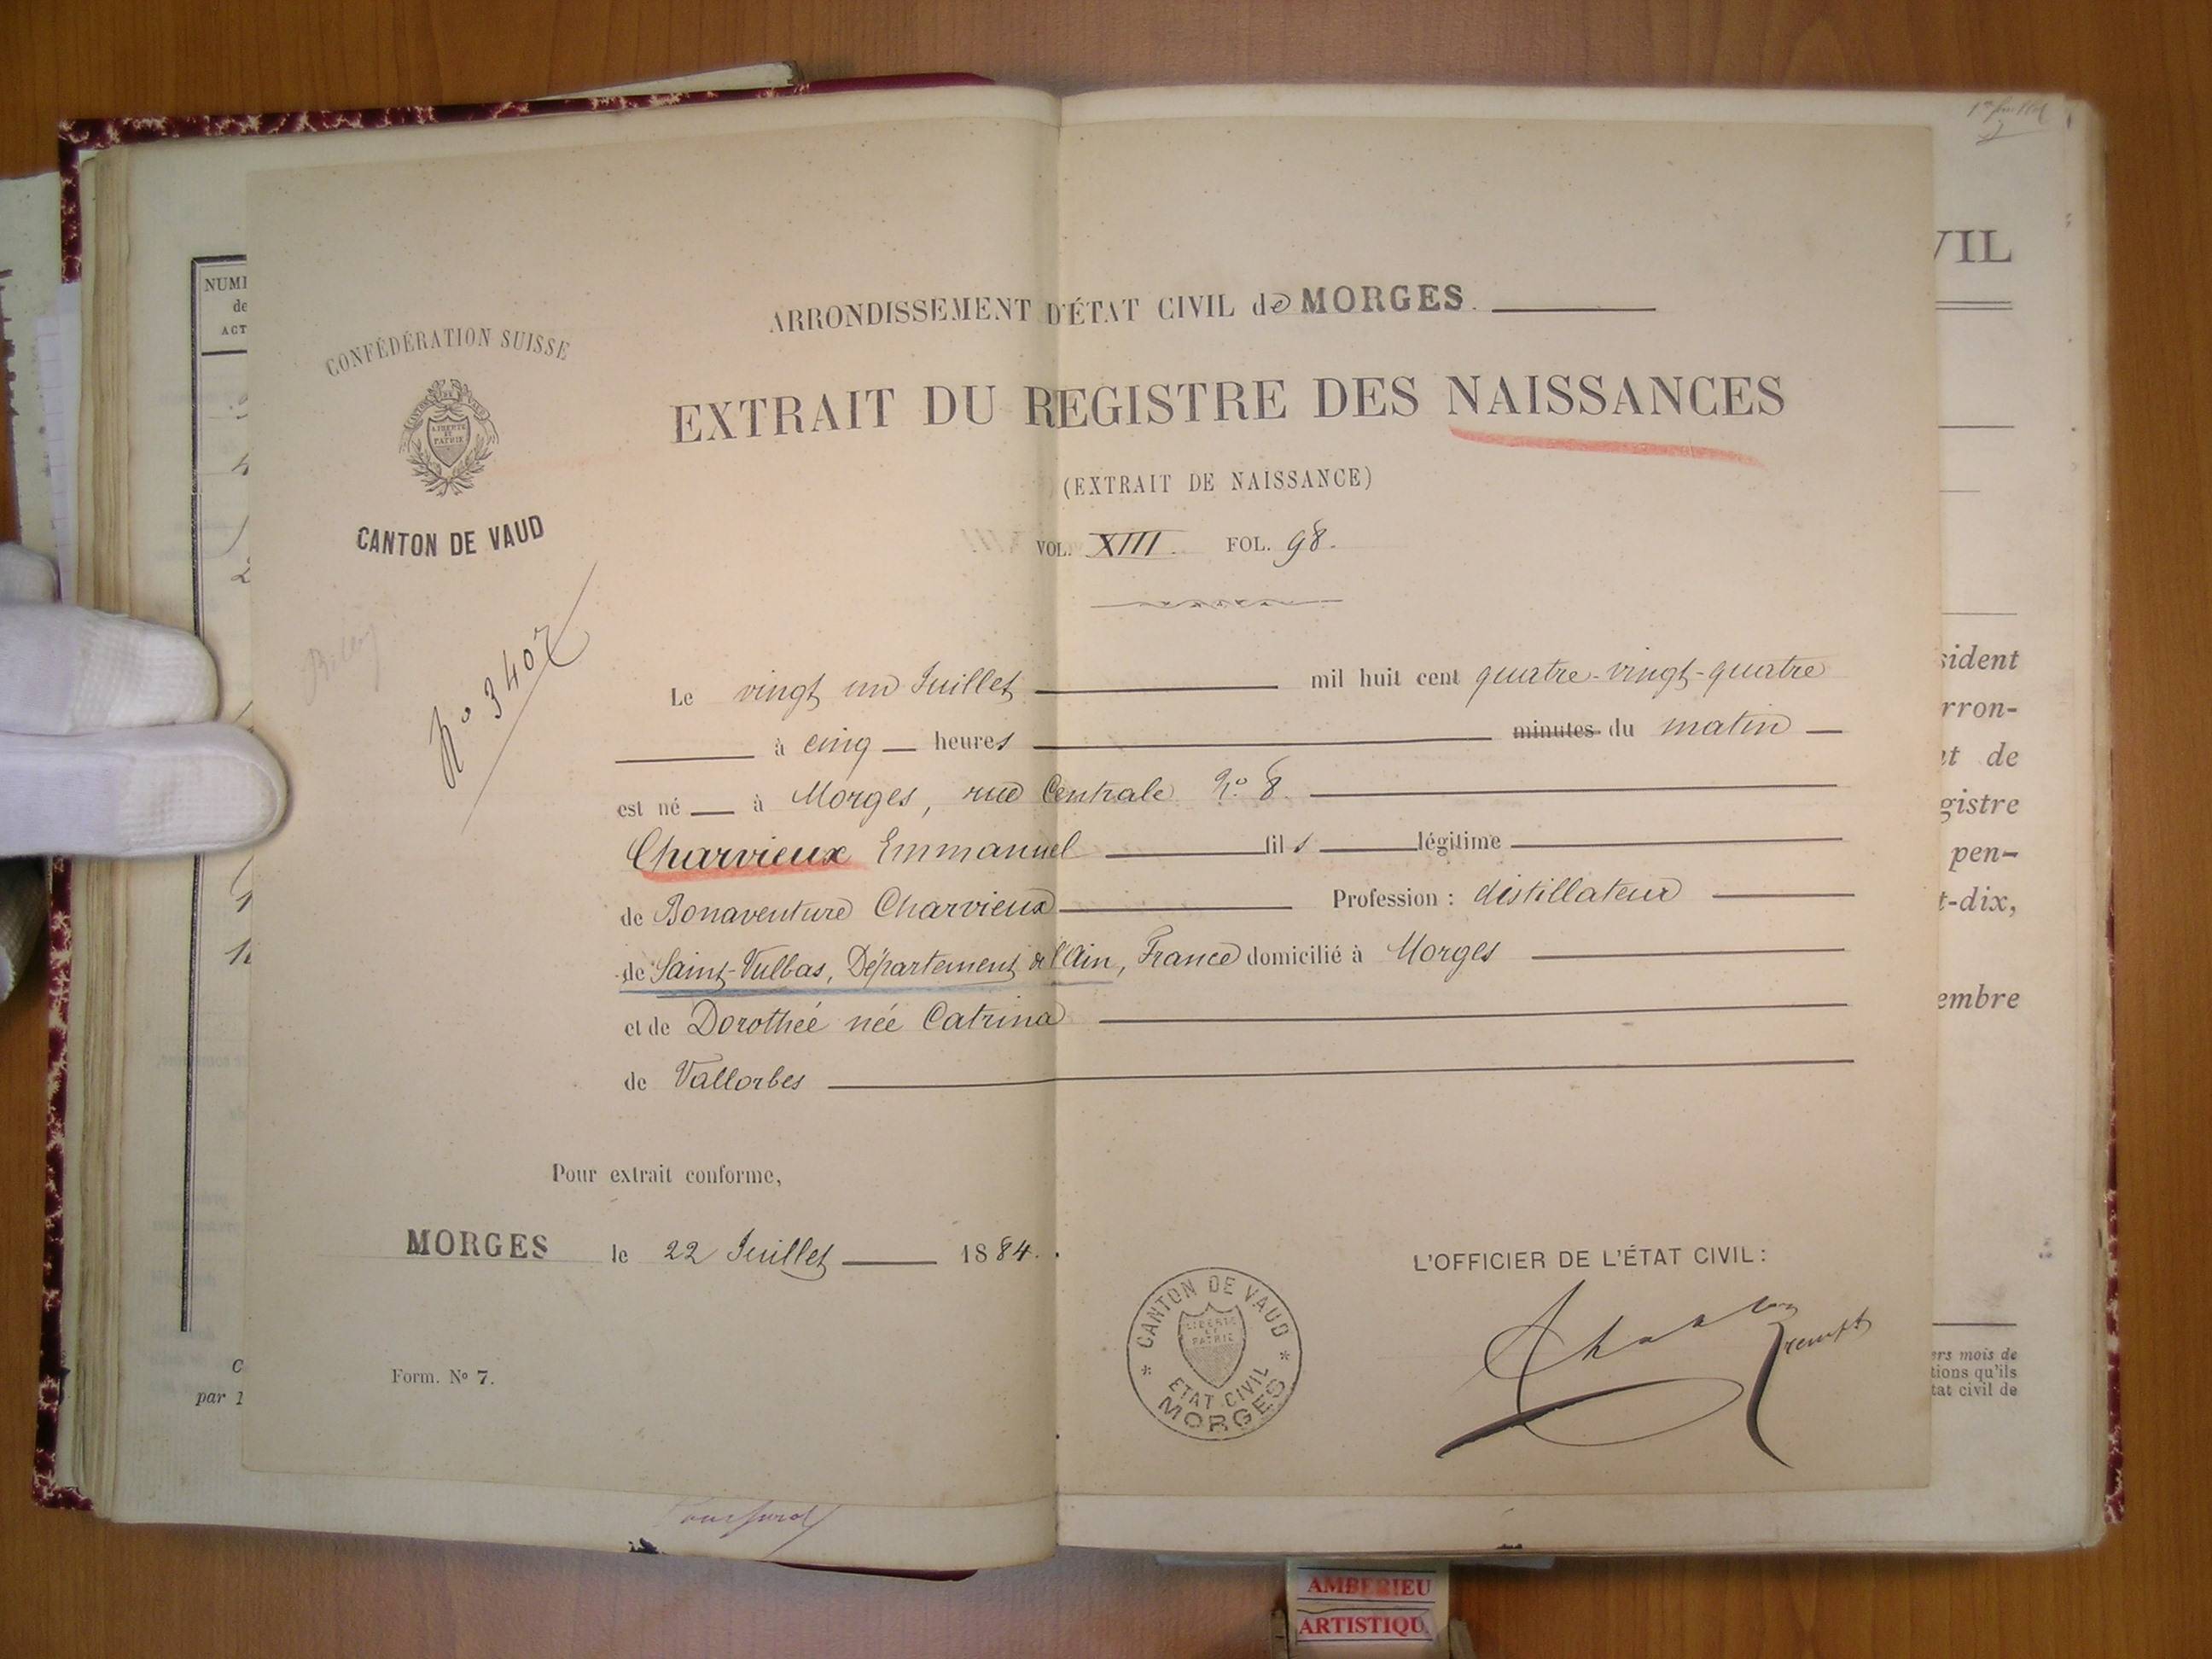 ARRONDISSEMENT D'ÉTAT CIVIL de MORGES.
CONFÉDÉRATION SUISSE
LIBERTÉ ET PATRIE
CANTON DE VAUD
EXTRAIT DU REGISTRE DES NAISSANCES
(EXTRAIT DE NAISSANCE)
VOL. XIII. FOL. 98.
No 3407
Le vingt un Juillet mil huit cent quatre-vingt-quatre
à cinq heures minutes du matin
est né à Morges, rue Centrale No 8.
Charvieux Emmanuel fils légitime
de Bonaventure Charvieux Profession : distillateur
de Saint-Vulbas, Département de l'Ain, France domicilié à Morges
et de Dorothée née Catrina
de Vallorbes
Pour extrait conforme,
MORGES le 22 Juillet 1884.
L'OFFICIER DE L'ÉTAT CIVIL :
CANTON DE VAUD
LIBERTÉ ET PATRIE
ETAT CIVIL
MORGES
Form. No 7.
NUMÉ
de
ACT
C
par 1
VIL
sident
rron-
nt de
gistre
pen-
t-dix,
embre
ers mois de
tions qu'ils
tat civil de
AMBERIEU
ARTISTIQU